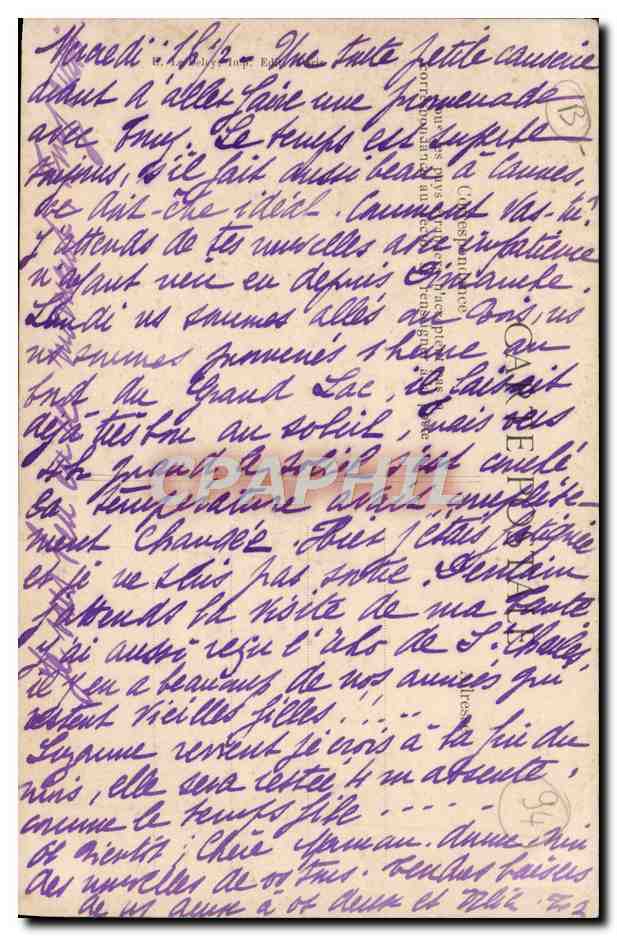 Mercredi 1h ½ - Une toute petite causerie
avant d'aller faire une promenade
avec Guy. Le temps est superbe
s'il fait aussi beau à Cannes,
ce doit-être idéal. Comment vas-tu ?
j'attends de tes nouvelles avec impatience
n'ayant rien eu depuis Dimanche.
Lundi ns sommes allés au Bois, ns
ns sommes promenés 1 heure au
bord du Grand Lac, il faisait
déjà très bon au soleil, mais vers
4h quand le soleil s'est couché
la température avait complète-
ment changée. Hier j'étais fatiguée
et je ne suis pas sortie. Demain
j'attends la visite de ma tante
j'ai aussi reçu l'écho de S. Charles,
il y en a beaucoup de nos années qui
restent vieilles filles !.....
Suzanne revient je crois à la fin du
mois, elle sera restée 4 m absente,
comme le temps file .....
à bientôt, chère Maman. donne moi
des nouvelles de vs tous. Tendres baisers
de ns deux à vs deux et
CARTE POSTALE
Correspondance
Adresse
Tous les pays étrangers n'acceptent pas la
correspondance au recto, se renseigner à la Poste
B
94
CPAPHIL